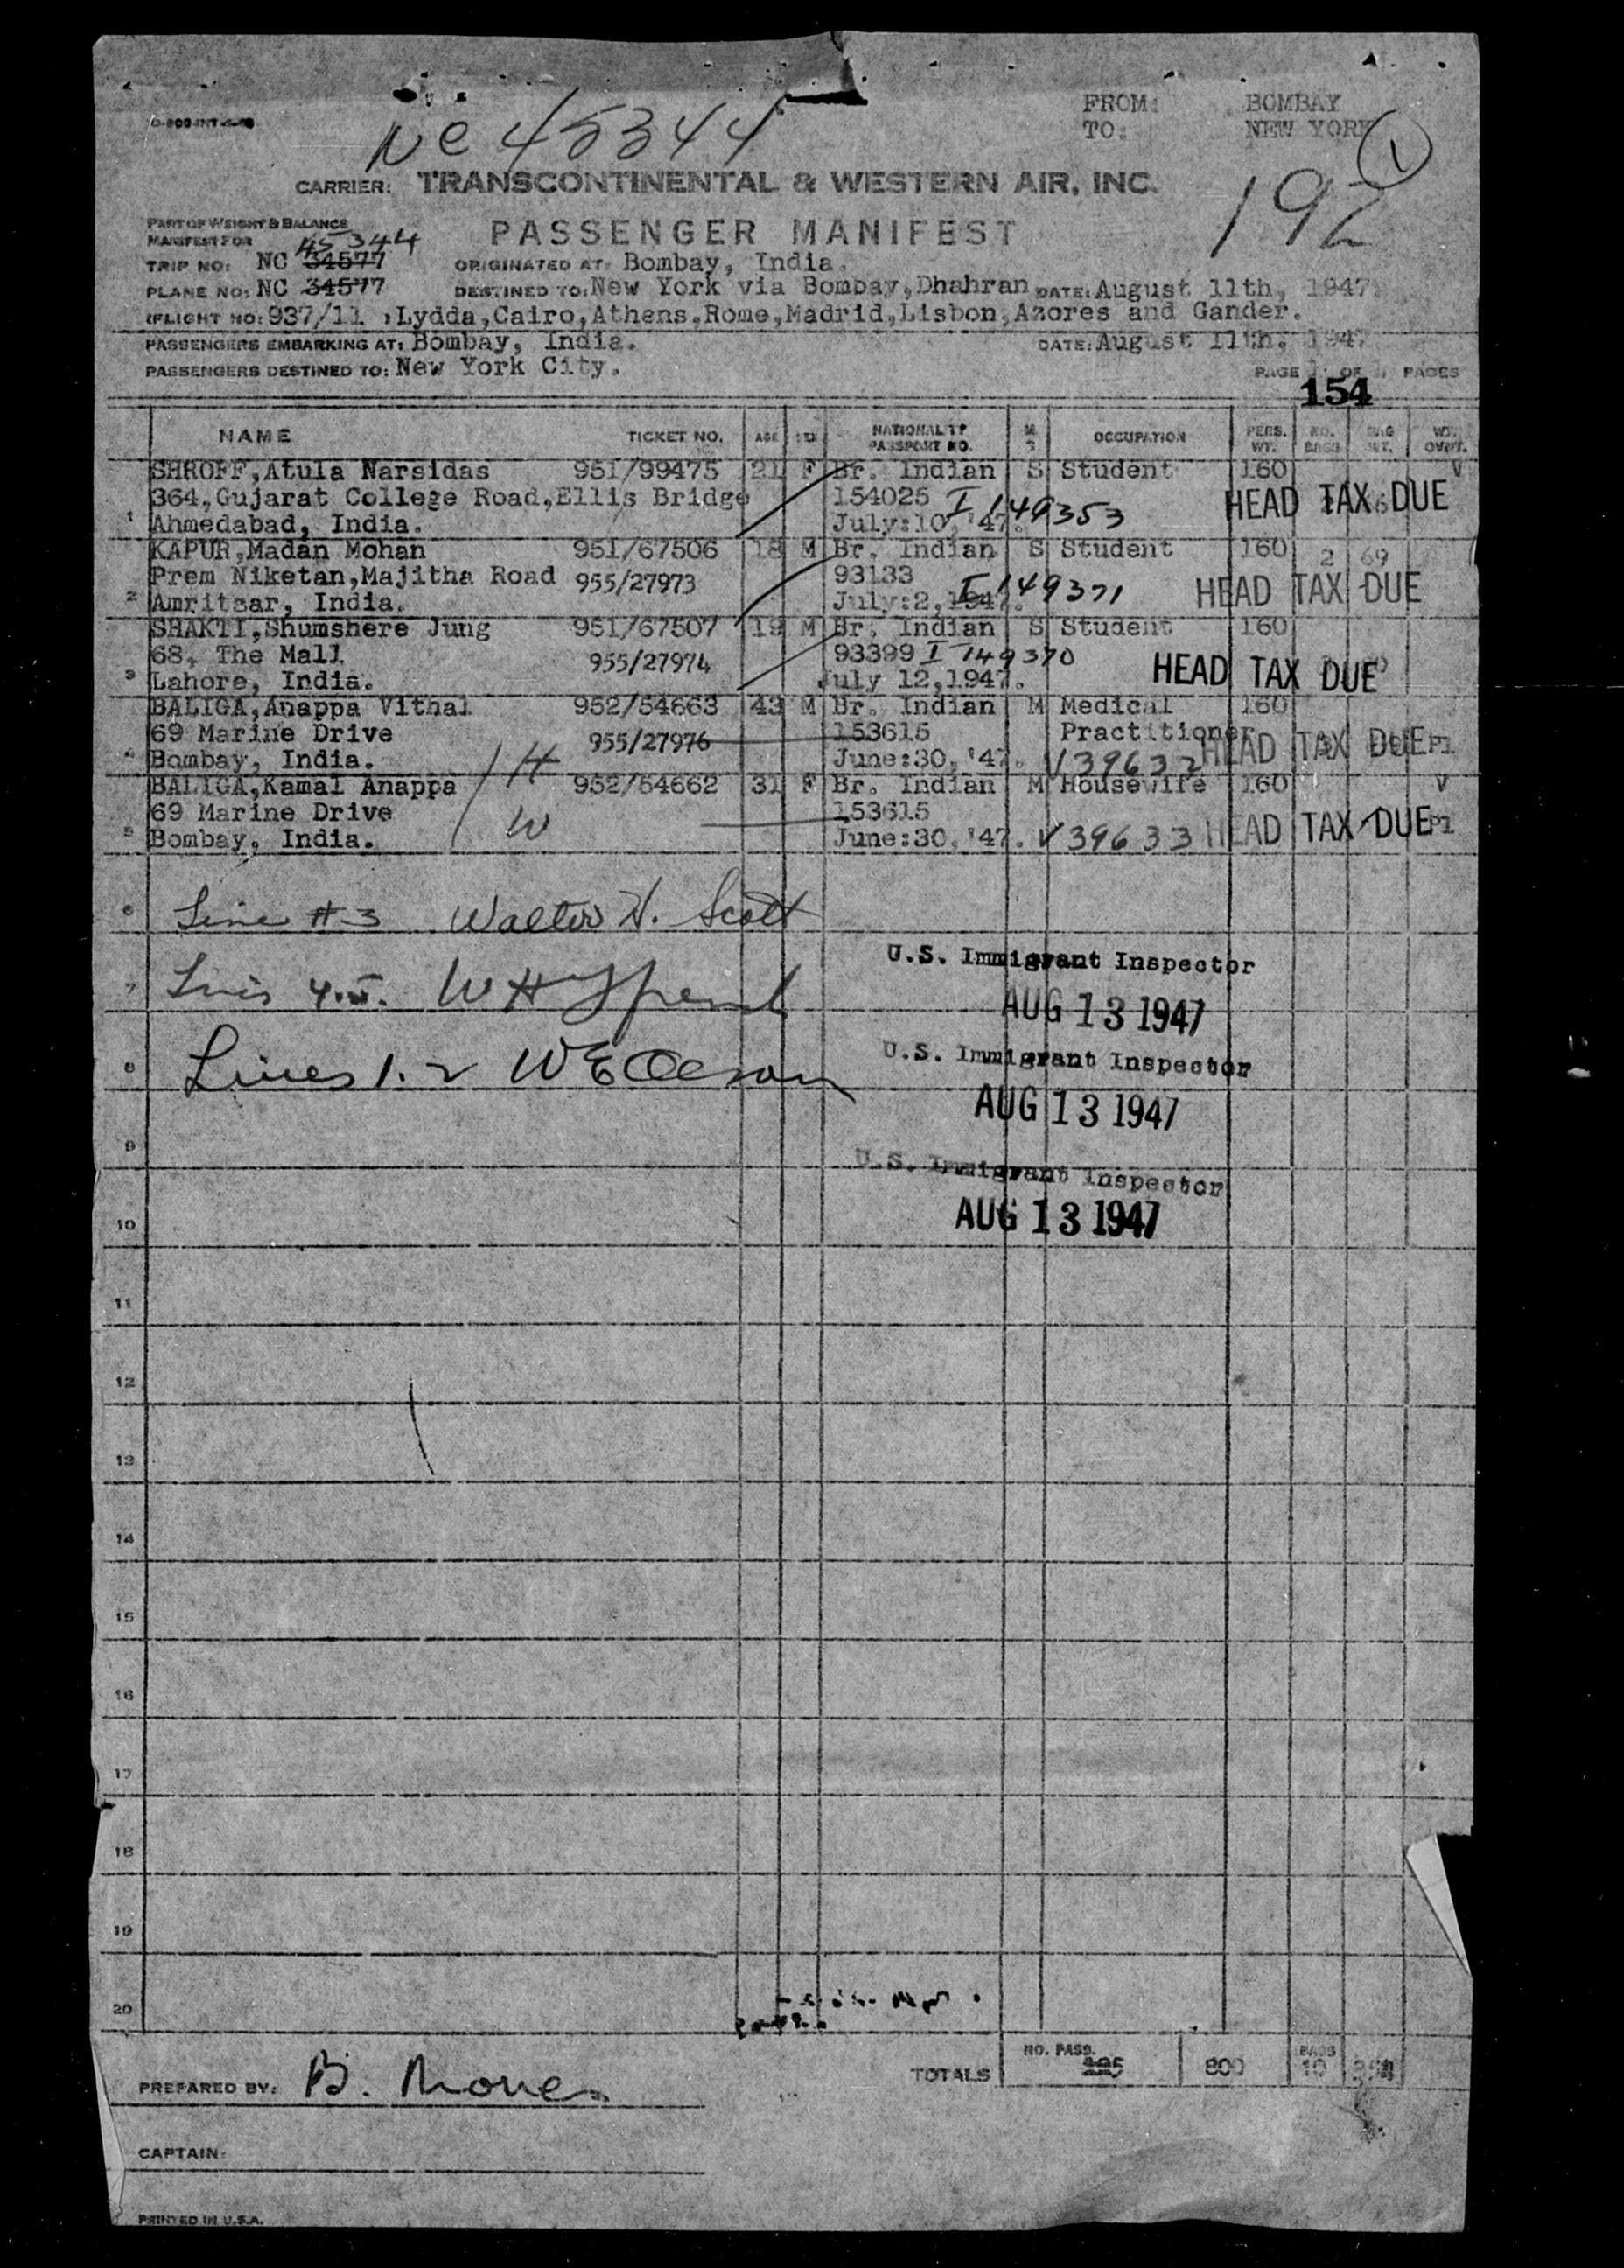 FROM: BOMBAY
TO: NEW YORK
NC 45344
1
192
CARRIER: TRANSCONTINENTAL & WESTERN AIR, INC.
PASSENGER MANIFEST
PART OF WEIGHT & BALANCE
MANIFEST FOR 45344
TRIP NO: NC 34577 ORIGINATED AT: Bombay, India.
PLANE NO: NC 34577 DESTINED TO: New York via Bombay, Dhahran DATE: August 11th, 1947.
(FLIGHT NO: 937/11 ,Lydda,Cairo,Athens,Rome,Madrid,Lisbon,Azores and Gander.
PASSENGERS EMBARKING AT: Bombay, India. DATE: August 11th, 1947
PASSENGERS DESTINED TO: New York City.
PAGE OF PAGES
154
NAME TICKET NO. AGE NATIONALITY PASSPORT NO. M S OCCUPATION PERS. WT. NO. BAGS BAG WT. WT. OVRT.
1 SHROFF,Atula Narsidas 951/99475 21 F Br. Indian S Student 160 V
364,Gujarat College Road,Ellis Bridge 154025 I 149353 HEAD TAX DUE
Ahmedabad, India. July:10,'47.
2 KAPUR,Madan Mohan 951/67506 18 M Br. Indian S Student 160 2 69
Prem Niketan,Majitha Road 955/27973 93133 I 149371 HEAD TAX DUE
Amritsar, India. July:2,1947.
3 SHAKTI,Shumshere Jung 951/67507 19 M Br. Indian S Student 160
68, The Mall 955/27974 93399 I 149370 HEAD TAX DUE
Lahore, India. July 12,1947.
4 BALIGA,Anappa Vithal 952/54663 43 M Br. Indian M Medical 160
69 Marine Drive 955/27976 153615 Practitioner HEAD TAX DUE
Bombay, India. H June:30,'47. V39632
5 BALIGA,Kamal Anappa 952/54662 31 F Br. Indian M Housewife 160 V
69 Marine Drive W 153615 HEAD TAX DUE
Bombay, India. June:30,'47. V39633
6 Line #3 Walter H. Scott
U.S. Immigrant Inspector
7 Lines 4.5.
AUG 13 1947
U.S. Immigrant Inspector
8 Lines 1.2
AUG 13 1947
9
U.S. Immigrant Inspector
10
AUG 13 1947
11
12
13
14
15
16
17
18
19
20
TOTALS NO. PASS. 800 BAGS 10
PREPARED BY:
CAPTAIN:
PRINTED IN U.S.A.